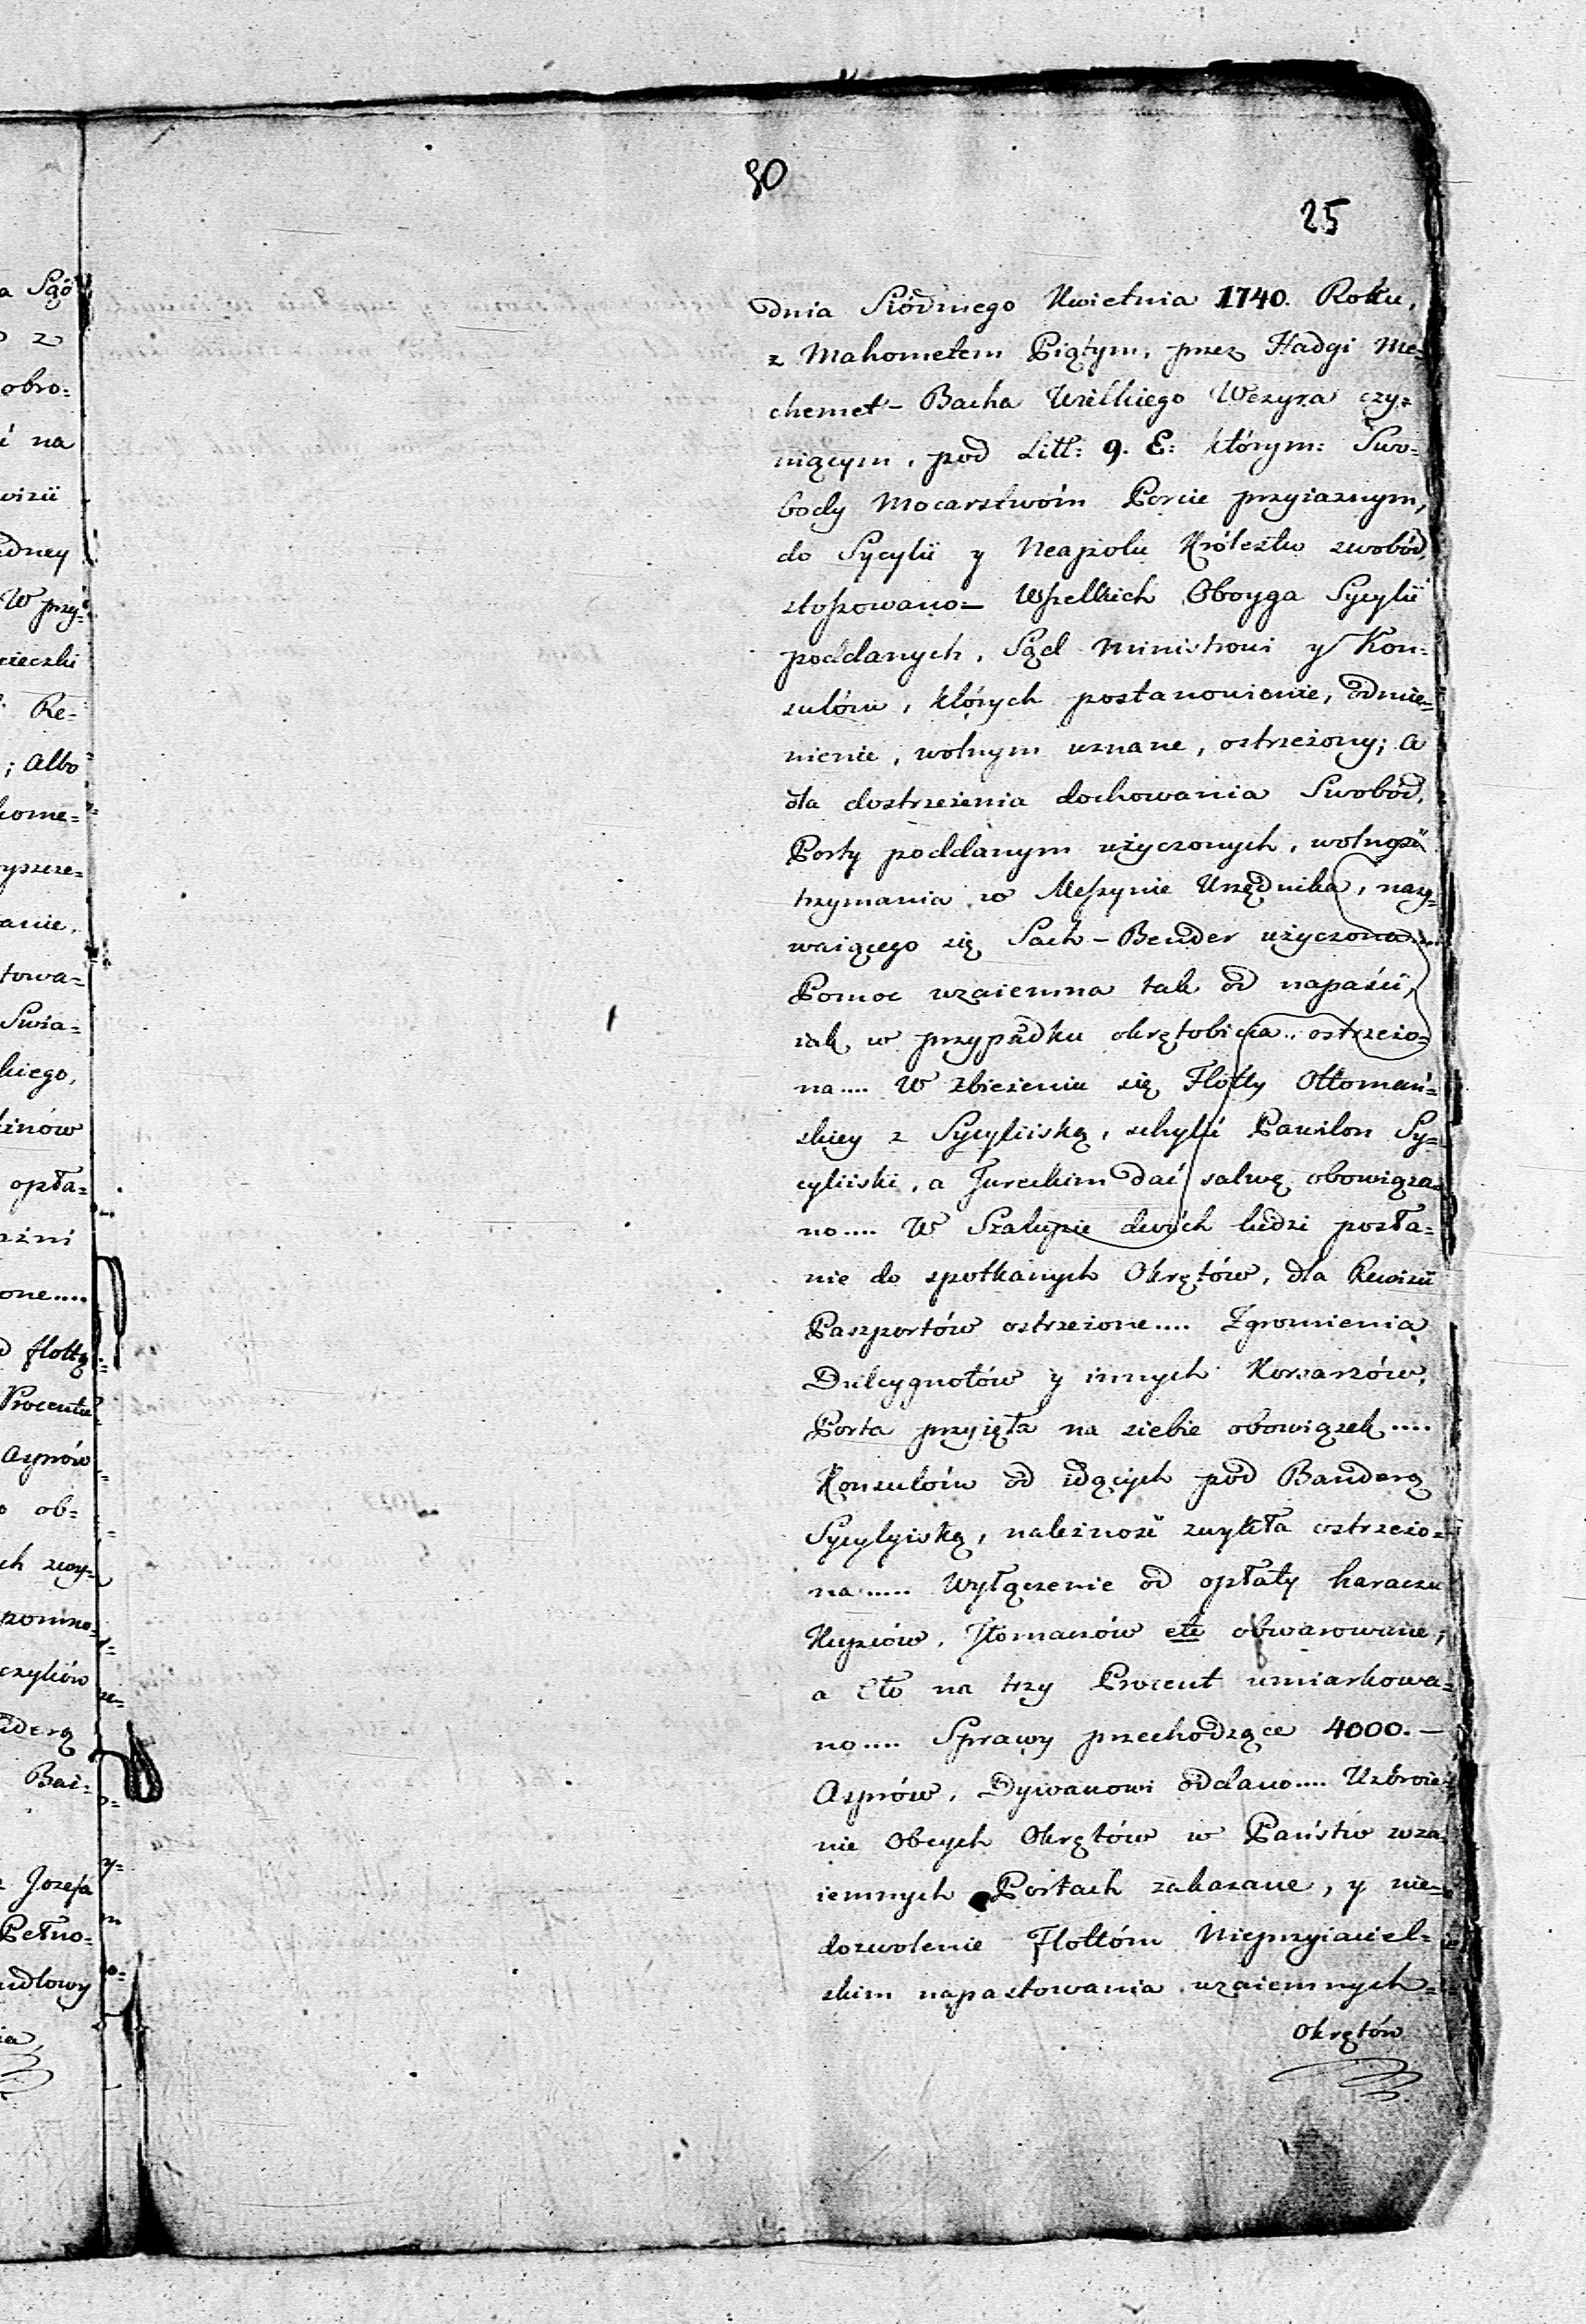 90
25
dnia Siódmego Kwietnia 1740. Roku,
z Mahometem Piątym, przez Hadgi Me=
chemet - Bacha Wielkiego Wezyra czy=
niącym, pod Litt: 9. E: którym: Swo=
body Mocarstwóm Porcie przyiaznym,
do Sycylii y Neapolu Królestw swobód,
stosowano - Wszelkich Oboyga Sycylii
poddanych, Sąd Ministrowi y Kon=
sulóm, których postanowienie, odmie=
nienie, wolnym uznane, ostrzeżony; a
dla dostrzeżenia dochowania Swobód,
Porty poddanym użyczonych, wolność
trzymania w Messynie Urzędnika, nazy=
waiącego się Sach - Bender użyczona....
Pomoc wzaiemna tak od napaści,
iak w przypadku okrętobicia.. ostrzeżo=
na.... W zbieżeniu się Flotty Ottomań=
skiey z Sycyliiską, schylić Pawilon Sy=
cyliiski, a Tureckim dać salwę obowiąza=
no.... W Szalupie dwóch ludzi posła=
nie do spotkanych Okrętów, dla Rewizii
Paszportów ostrzeżone.... Zgromienia
Dulcygnotów y innych Korsarzów,
Porta przyięła na siebie obowiązek....
Konsulóm od idących pod Banderą
Sycylyiską, należność zwykła ostrzeżo=
na..... Wyłączenie od opłaty haraczu
Kupców, Tłomaczów etc obwarowane,
a Cło na trzy Procent umiarkowa=
no.... Sprawy przechodzące 4000. -
Asprów, Dywanowi oddano.... Uzbroie=
nie Obcych Okrętów w Państw wza
iemnych Portach zakazane, y nie=
dozwolenie Flottóm Nieprzyiaciel=
skim napastowania wzaiemnych=
Okrętów
a Sgo
o z
obro=
ć na
wizii
W przy=
cieczki
Re=
; Albo
kome=
anie,
towa=
Swia=
kiego,
opła=
one....
flottą
Procentu
Asprów
ob=
pomno=
Bai=
Jozefa
Pełno=
ndlowy